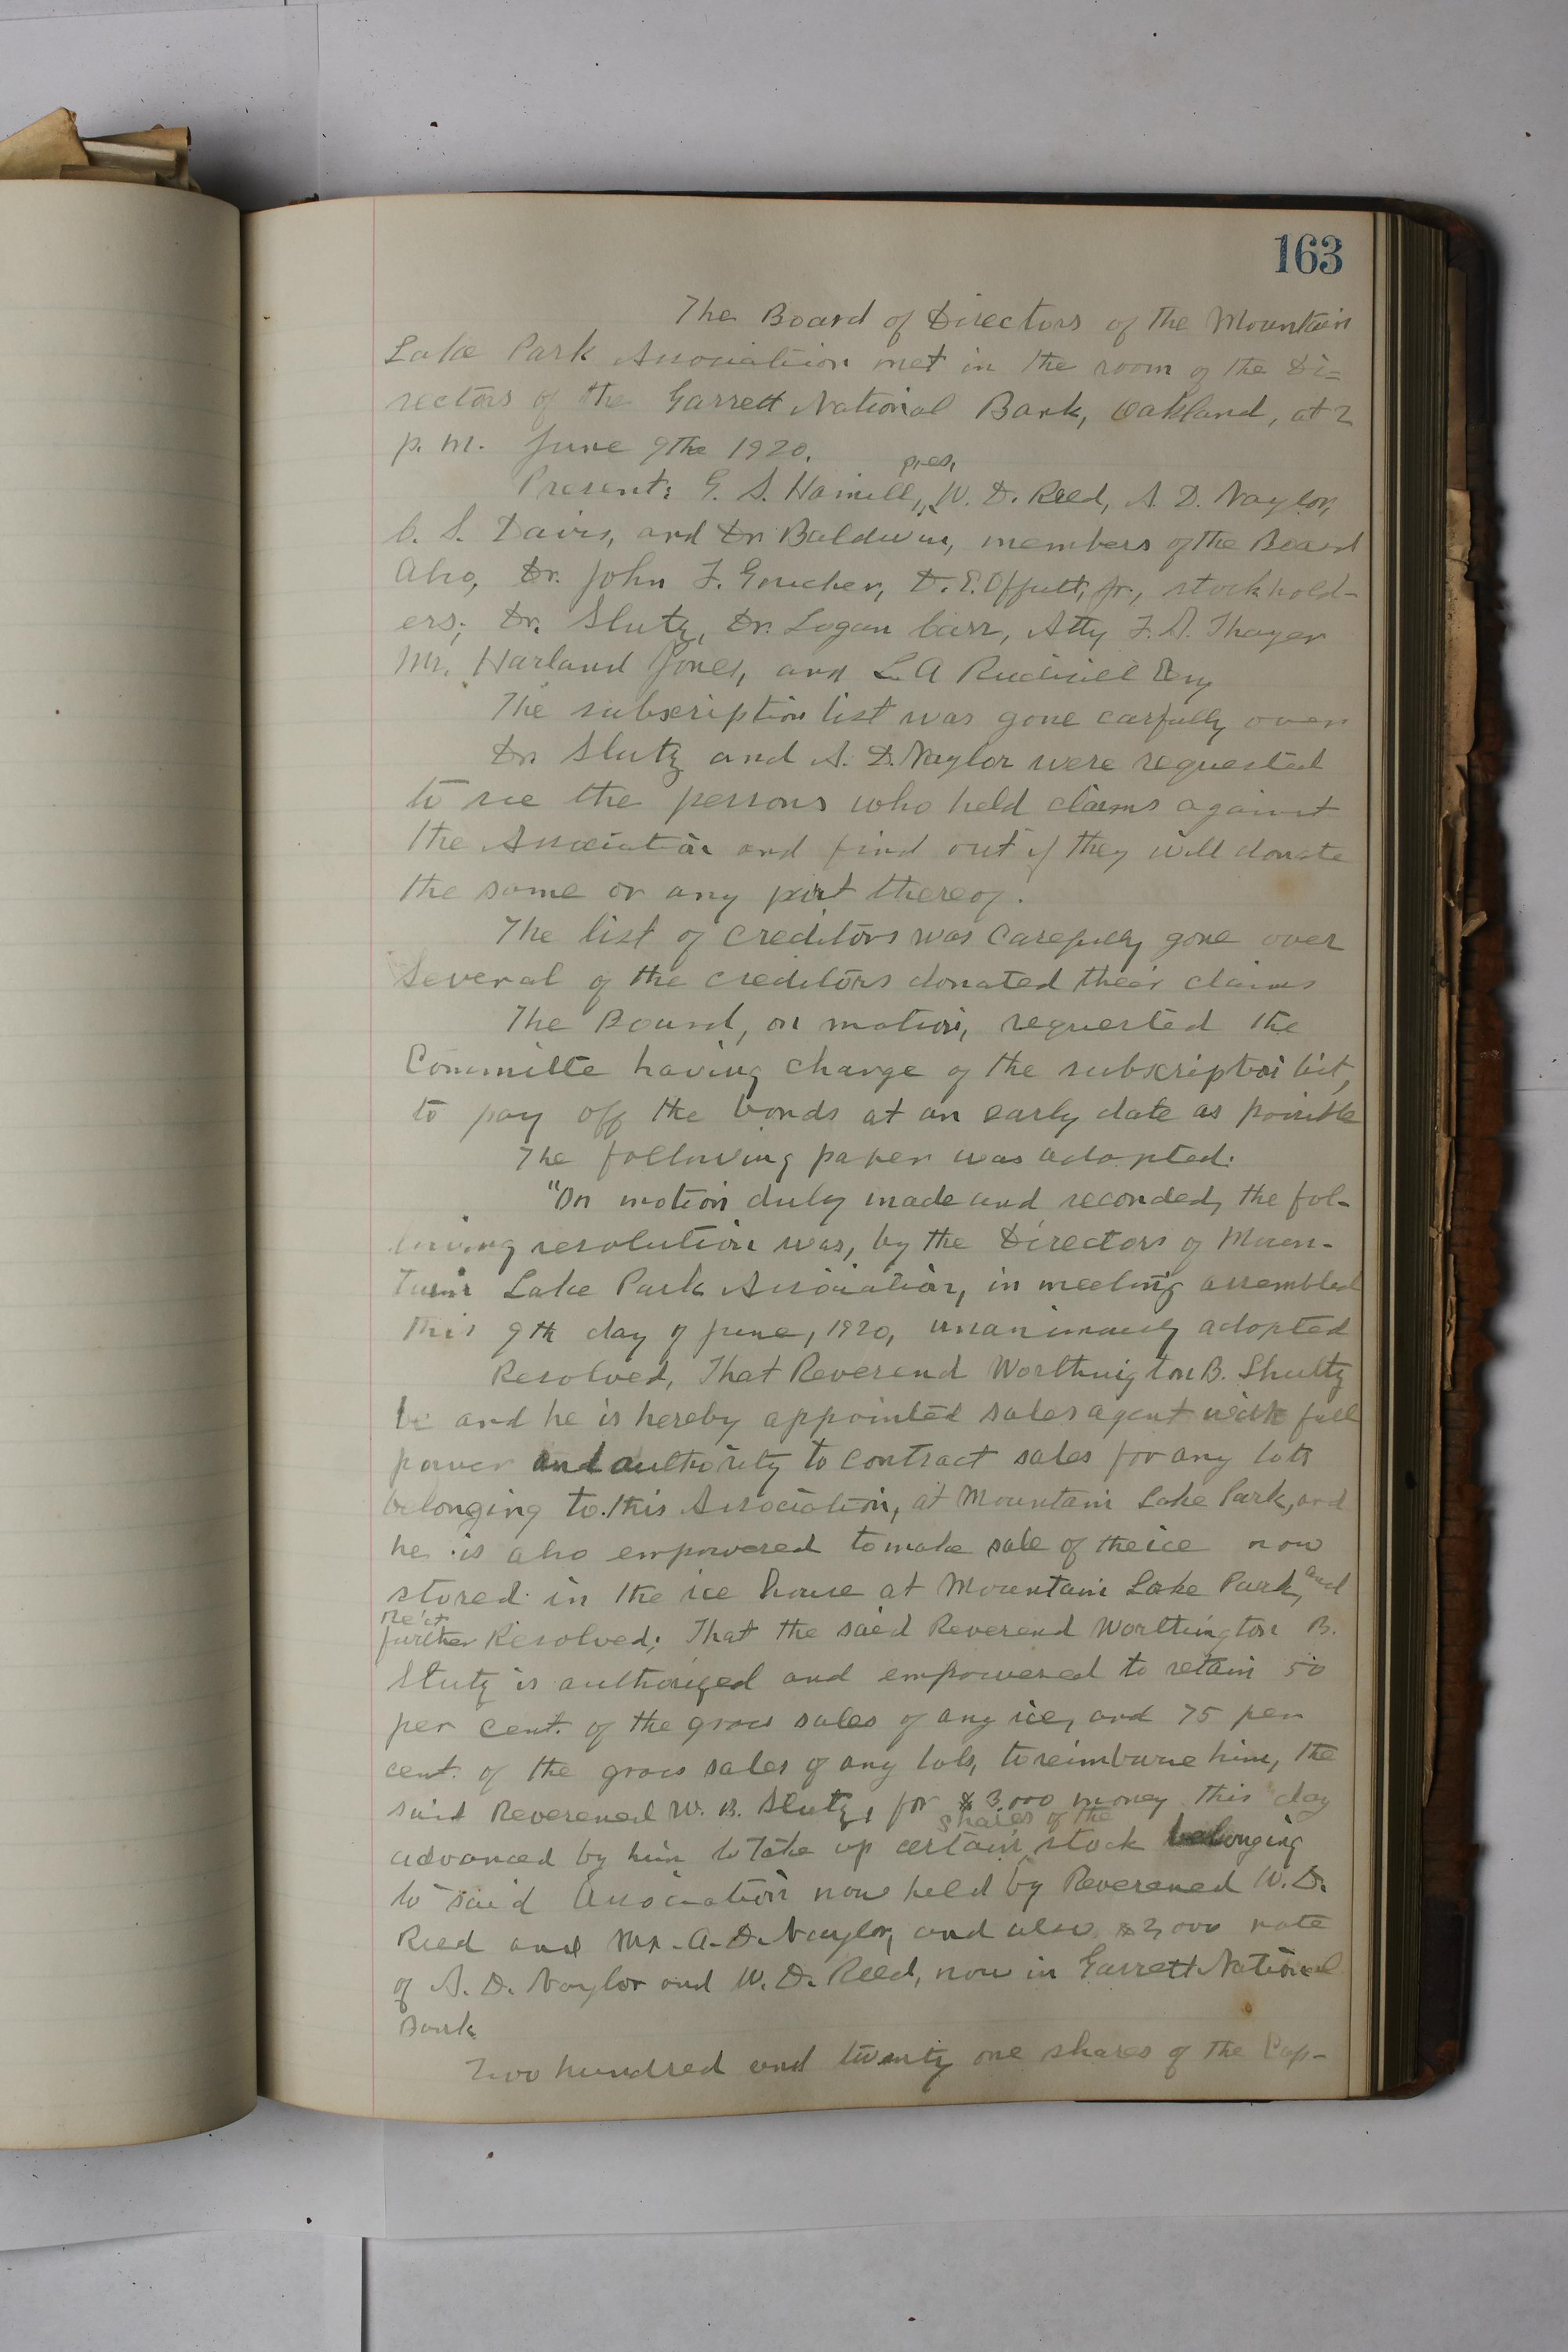 163
The Board of Directors of the Mountain
Lake Park Association met in the room of the Di=
rectors of the Garrett National Bank, Oakland, at 2
p. m. June 9the 1920.
pres,
Present: G. S. Hamill, W. D. Reed, A. D. Naylor,
C. S. Davis, and Dr. Baldwin, members of the Board
Also, Dr. John F. Goucher, D. E. Offutt, Jr., stockhold-
ers; Dr. Slutz, Dr. Logan Carr, Atty F. A. Thayer
Mr. Harland Jones, and L. A Rudisill
The subscription list was gone carfully over
Dr Slutz and A. D. Naylor were requested
to see the persons who held claims against
the Association and find out if they will donate
the same or any part thereof.
The list of creditors was carefully gone over
Several of the creditors donated their claims
The Board, on motion, requested the
Committe having charge of the subscription list,
to pay off the bonds at an early date as possible
The following paper was adopted:
"On motion duly made and seconded, the fol-
lowing resolution was, by the Directors of Moun-
tain Lake Park Association, in meeting assembled
this 9th day of June, 1920, unanimously adopted
Resolved, That Reverend Worthington B. Shultz
be and he is hereby appointed sales agent with full
power and authority to contract sales for any lots
belonging to this Association, at Mountain Lake Park, and
he is also empowered to make sale of the ice now
stored in the ice house at Mountain Lake Park, and
Be it
further Resolved; That the said Reverend Worthington B.
Slutz is authorized and empowered to retain 50
per cent. of the gross sales of any ice, and 75 per
cent. of the gross sales of any lots, to reimburse him, the
said Reverened W. B. Slutz, for $3,000 money this day
shares of the
advanced by him to take up certain stock belonging
to said Association now held by Reverened W. D.
Reed and Mr. A. D. Naylor, and also note
of A. D. Naylor and W. D. Reed, now in Garrett National
Bank
Two hundred and twenty one shares of the Cap-